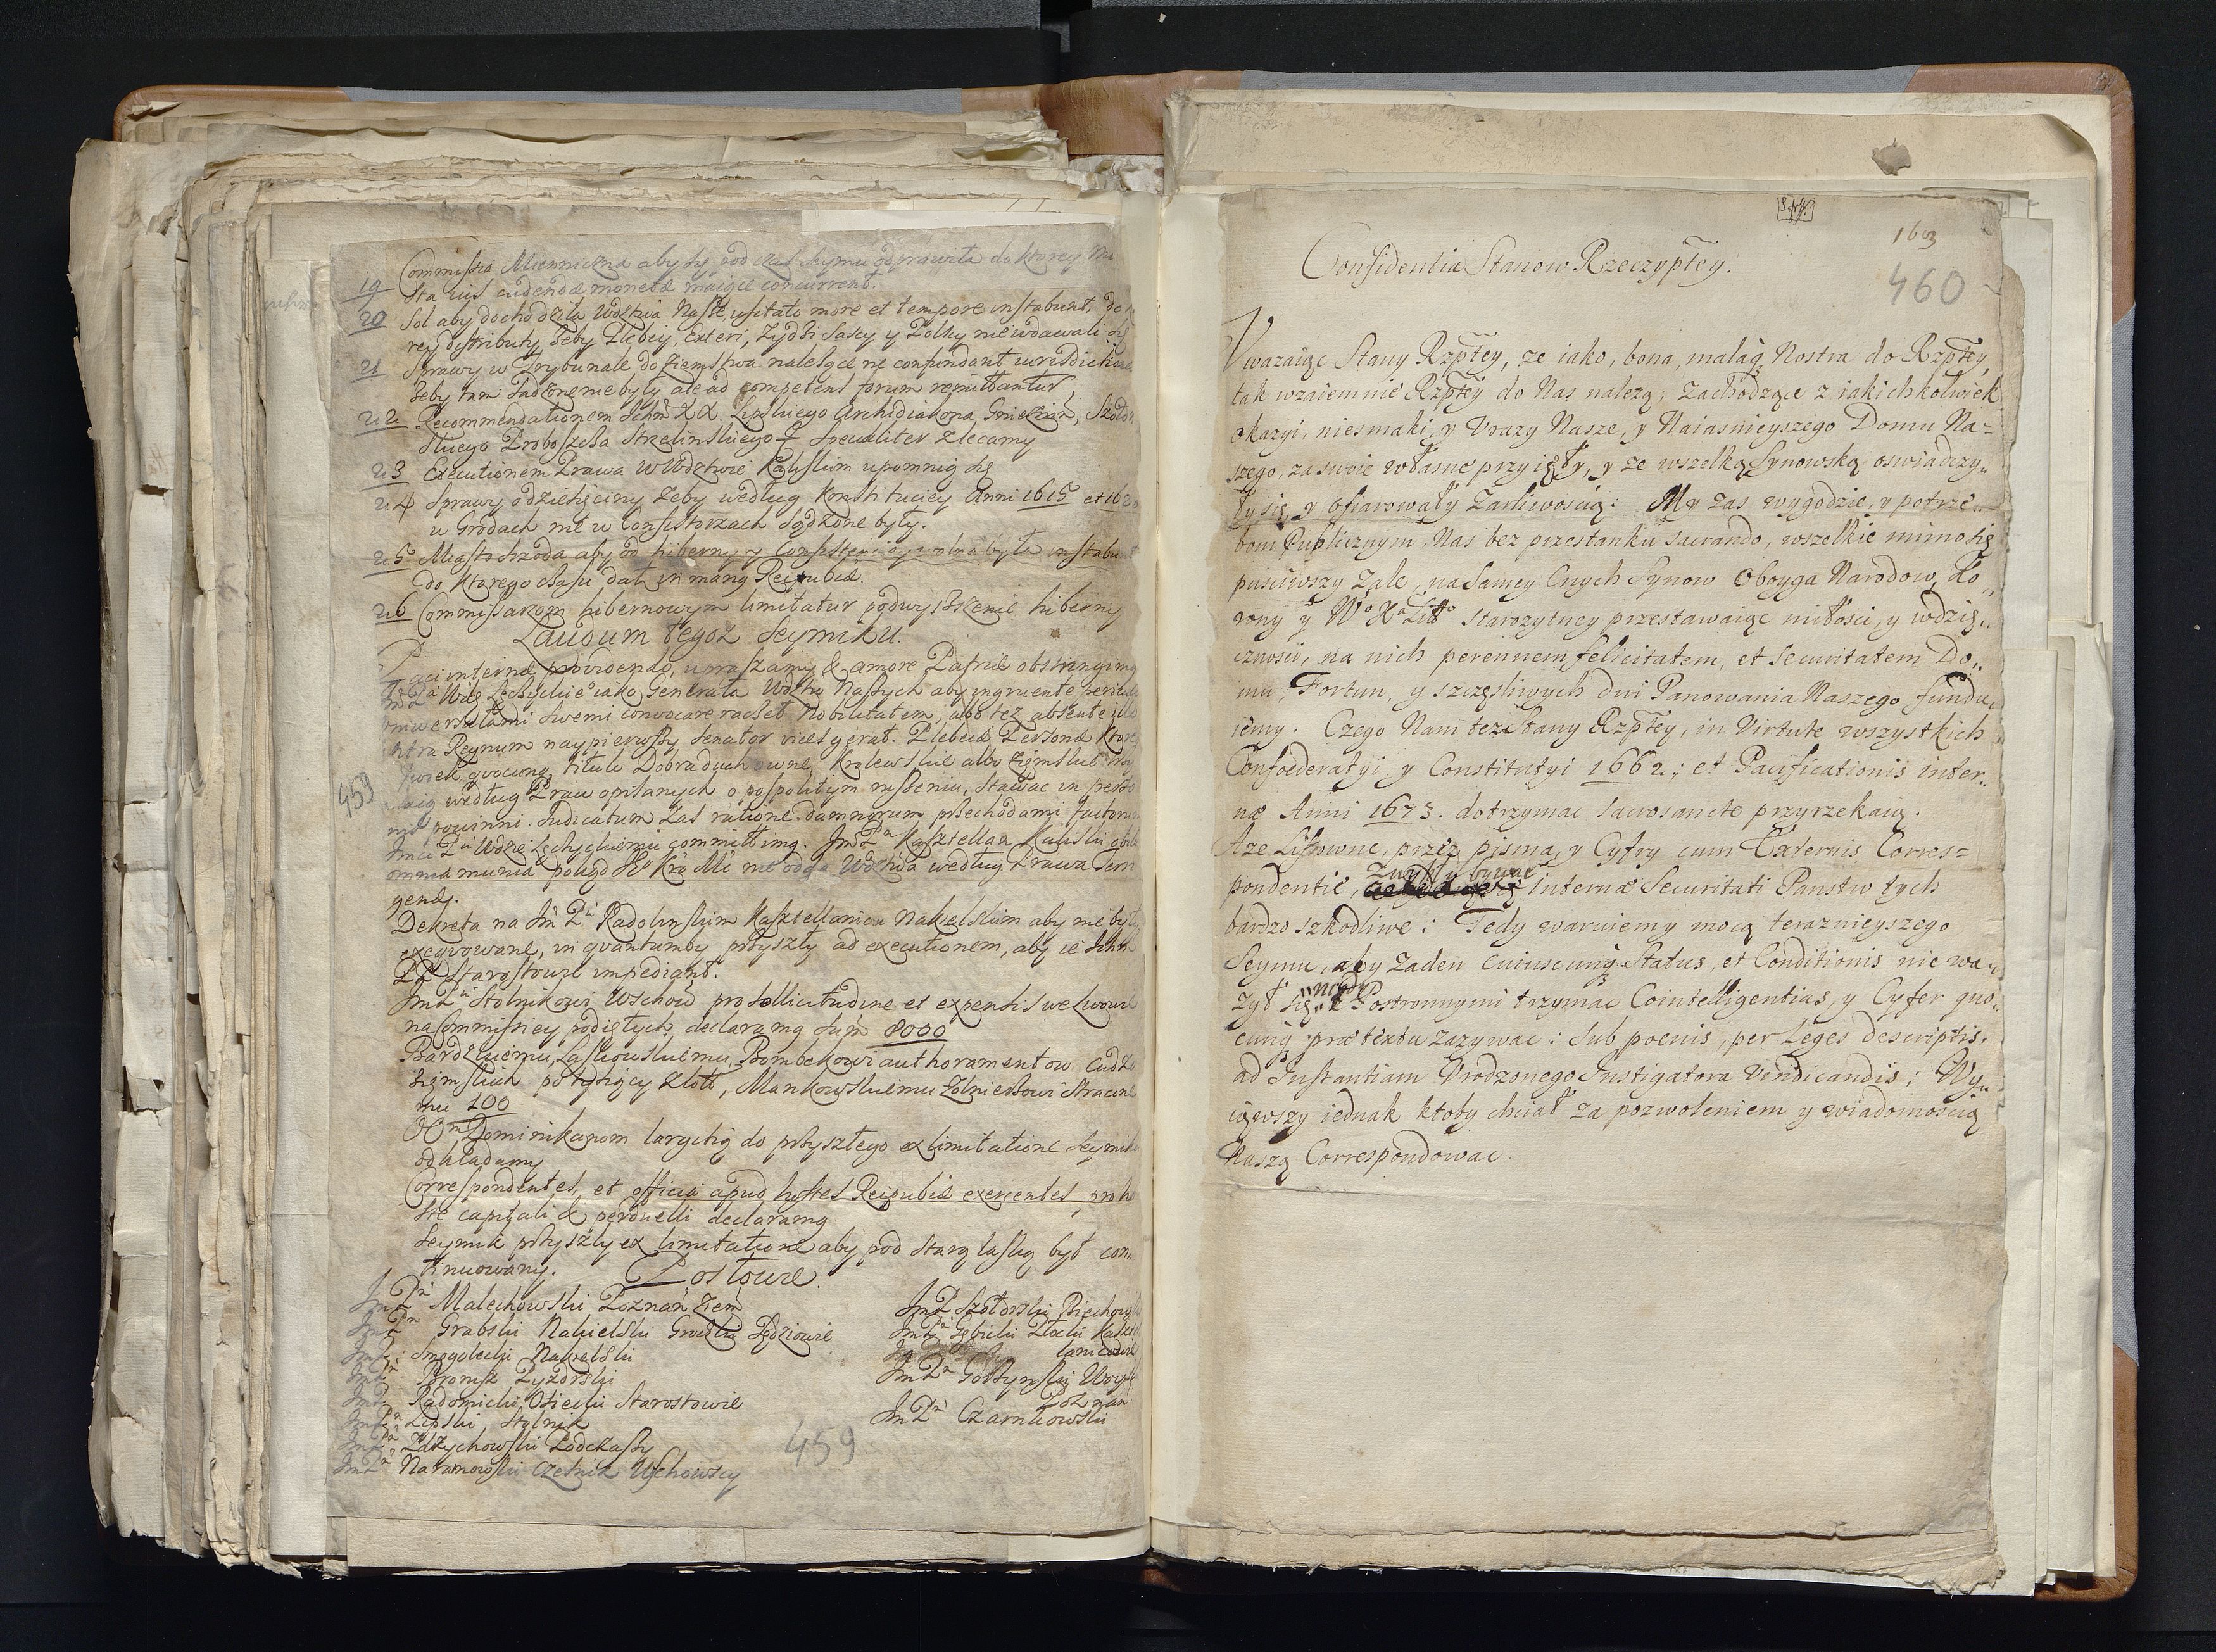 Commissia Mienniczna aby się pod czas Seymu odprawiła do ktorey Mi
19 sta ius cudendae monetae maiące concurrent.
20 Sol aby dochodziła Wdztwa Nasze, usitato more et tempore instabunt, do
rey dystributy, żeby Plebei, Exteri, Zydzi, Sascy y Polscy nie wdawali się
21 Sprawy w Trybunale do Ziemstwa nalezące ne confundant iurisdictiones
zeby tam sądzone nie były ale ad competens forum remittantur
22 Recommendationem Ichm XX. Lipskiego Archidiakona Gnieznin,
skiego Proboszcza Strzelinskiego specialiter zlecamy
23 Executionem Prawa w Wdztwie Kaliskim upomnią się
24 Sprawy o dziesięciny zeby według Konstituciey Anni 1615 et
w Grodach nie w Consistorzach sądzone były.
25 Miasto Szroda aby od hiberny y Consistencij wolna była instabunt
do ktorego czasu dat in manq Reipublae.
26 Commissarzom hibernowym limitatur podwyższenie hiberny
Laudum tegoz Seymiku.
Paci internae providendo, upraszamy & amore Patriae obstringimq
ImPa Wdę Łęczyckie iako Generała Wdztw Naszych aby ingruente periculo
uniwersałami swemi convocare raczeł Nobilitatem, albo tez absente illo
extra Regnum naypierwszy Senator vices gerat. Plebeae Personae ktore
kwiek quocunq titulo Dobra duchowne, Krolewskie albo Ziemskie
maią według Praw opisanych o pospolitym ruszeniu, stawac in perso
nis powinni. Iudicatum zas ratione damnorum przechodami factorum
Imci Pa Wdzie Łęczyckiemu committimq. Im Pn Kasztellan Kaliski
omnia munia pokąd Ko Kro Mi nie odda Wdztwa według Prawa
gendi.
Dekreta na Im Pa Radolinskim Kasztellanicu Nakielskim aby nie były
exequowane, in quantumby przyszły ad executionem, aby ie Ichm
PP Starostowie impediant.
Im Pu Stolnikowi Wschow pro sollicitudine et expensis we Lwowie
na Commissiey podiętych, declaramq Sum 8000
Bardzkiemu, Laskowskiemu, Bombekowi authoramentow cudzo
ziemskich po tysiący złoto, Mankowskiemu Zołnierzowi stracone
mu 100
OOm Dominikanom largitią do przyszłego ex limitatione Seymiku
odkładamy
Correspondentes, et officia apud hostes Reipublae exercentes, pro ho
ste capitali & perduelli declaramq
Seymik przyszły ex limitatione aby pod starą laską był con
tinuowany.
Posłowie.
Im Pn Malechowski Poznan Ziem
Im Pn Grabski Nakielski Grodzki Sędziowie
Im P Smogulecki Nakielski
Im Pn Bronisz Pyzdrski
Im P Radomicki Osiecki Starostowie
Im Pn Lipski Stolnik
Im Pn Zdzychowski Podczaszy
Im Pn Naramowski Czesnik Wschowscy
Im P Szołdrski Biechow
Im Pn Gębicki Kaszte
lanicowie
Im Pn Gostynski Woys
Poznan
Im Pn Czarnkowski
459
459
1603
460
Confidentia Stanow Rzeczyptey.
Uwazaiąc Stany Rzptey, ze iako, bona, malaq Nostra do Rzptey,
tak wzaiemnie Rzptey do Nas nalezą, zachodzące z iakichkolwiek
okazyi, niesmaki, y Urazy Nasze, y Naiasnieyszego Domu Na=
szego, za swoie własne przyięły, y ze wszelką Synowską oswiadczy„
ły się, y ofiarowały zarliwoscią: My zas wygodzie, y potrze„
bom Publicznym, Nas bez przestanku sacrando, wszelkie mimo się
pusciwszy zale, na samey Cnych Synow Oboyga Narodow, Ko„
rony y Wo Xa Lito starozytney przestawaiąc miłosci, y wdzię„
cznosci, na nich perennem felicitatem, et securitatem Do„
mu, Fortun, y szczęsliwych dni Panowania Naszego fundu„
iemy. Czego Nam tez Stany Rzptey, in Virtute wszystkich
Confoederatyi y Constitutyi 1662.; et Pacificationis inter„
nae Anni 1673. dotrzymac sacrosancte przyrzekaią.
A ze Listowne, przez pisma, y Cyfry cum Externis Corres=
pondentie, zwykły bywac internae Securitati Panstw tych
bardzo szkodliwe; Tedy warujemy mocą teraznieyszego
Seymu, aby zaden cuiuscunq Status, et Conditionis nie wa„
zył się nigdy z Postronnymi trzymac Cointelligentias, y Cyfer quo„
cunq praetextu zazywac: sub poenis, per Leges descriptis,
ad Instantiam Urodzonego Instigatora vindicandis; Wy„
iąwszy iednak ktoby chciał za pozwoleniem y wiadomoscią
Naszą Correspondowac.